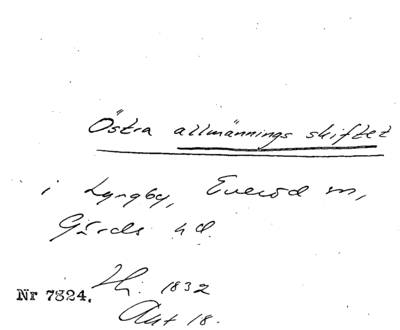 Östra allmännings skiftet
i Lyngby, Everöd m,
Gärds hd.
Hi. 1832
Nr 7824.
Akt 18.